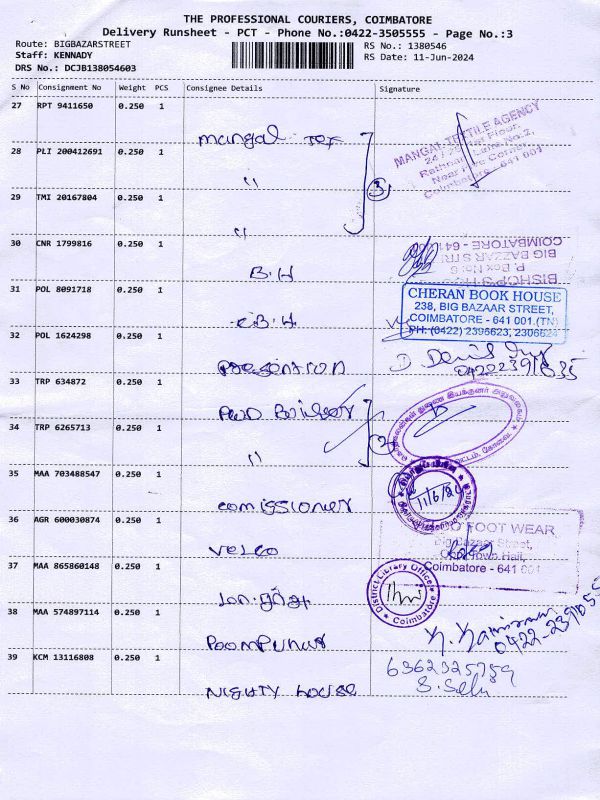 THE PROFESSIONAL COURIERS, COIMBATORE
Delivery Runsheet - PCT - Phone No.:0422-3505555 - Page No.:3
Route: BIGBAZARSTREET
RS No.: 1380546
Staff: KENNADY
RS Date: 11-Jun-2024
DRS No.: DCJB138054603
S No Consignment No Weight PCS Consignee Details Signature
27 RPT 9411650 0.250 1
Mangal Tex
MANGAL TEXTILE AGENCY
Coimbatore - 641 001
28 PLI 200412691 0.250 1
"
3
29 TMI 20167804 0.250 1
"
30 CNR 1799816 0.250 1
B.H
COIMBATORE - 641 001
BIG BAZZAR STR
P. Box No. 6
BISHOPS H
31 POL 8091718 0.250 1
C.B.H
CHERAN BOOK HOUSE
238, BIG BAZAAR STREET,
COIMBATORE - 641 001.(TN)
PH: (0422) 2396623, 230662
32 POL 1624298 0.250 1
Presentation
33 TRP 634872 0.250 1
34 TRP 6265713 0.250 1
"
2
35 MAA 703488547 0.250 1
comissioner
11/6/24
36 AGR 600030874 0.250 1
Velco
O FOOT WEAR
Big Bazaar Street,
Opp. Town Hall,
Coimbatore - 641 001
37 MAA 865860148 0.250 1
District Library Officer
Coimbatore
38 MAA 574897114 0.250 1
Poompuhar
0422-2391055
39 KCM 13116808 0.250 1
Nighty house
6362325759
S. Selu